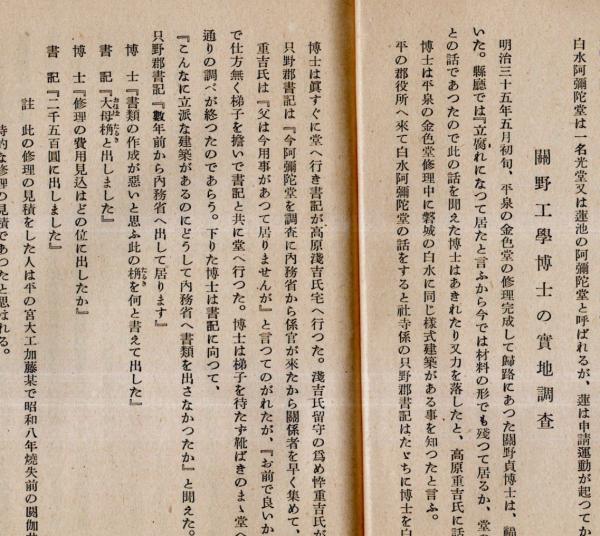 白水阿彌陀堂は一名光堂又は蓮池の阿彌陀堂と呼ばれるが、蓮は申請運動が起つてか
關野工學博士の實地調査
明治三十五年五月初旬、平泉の金色堂の修理完成して歸路にあつた關野貞博士は、福
いた。縣廳では『立腐れになつて居たと言ふから今では材料の形でも殘つて居るか、堂
との話であつたので此の話を聞えた博士はあきれたり又力を落したと、高原重吉氏に話
博士は平泉の金色堂修理中に磐城の白水に同じ樣式建築がある事を知つたと言ふ。
平の郡役所へ來て白水阿彌陀堂の話をすると社寺係の只野郡書記はたゞちに博士を白
博士は眞すぐに堂へ行き書記が高原淺吉氏宅へ行つた。淺吉氏留守の爲め悴重吉氏が
只野郡書記は『今阿彌陀堂を調査に內務省から係官が來たから關係者を早く集めて、
重吉氏は『父は今用事があつて居りませんが』と言つてのがれたが、『お前で良いか
で仕方無く梯子を擔いで書記と共に堂へ行つた。博士は梯子を待たず靴ばきのまゝ堂へ
通りの調べが終つたのであらう。下りた博士は書記に向つて、
『こんなに立派な建築があるのにどうして內務省へ書類を出さなかつたか』と聞えた。
只野郡書記『數年前から內務省へ出して居ります』
博士『書類の作成が惡いと思ふ此の椭を何と書えて出した』
書記『大母椭と出しました』
博士『修理の費用見込はどの位に出したか』
書記『二千五百圓に出しました』
註 此の修理の見積をした人は平の宮大工加藤某で昭和八年燒失前の閼伽井
的な修理の見積であつたと思はれる。